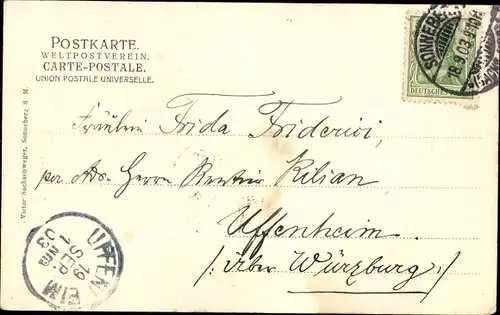 POSTKARTE.
WELTPOSTVEREIN.
CARTE-POSTALE.
UNION POSTALE UNIVERSELLE.
DEUTSCHES
SONNEBERG
18.9.03.
Fräulein Frida Friderici,
per Adr. Herrn Rentier Kilian
Uffenheim.
/: über Würzburg :/
Victor Sachsenweger, Sonneberg S. M.
UFFENHEIM
19
SEP.
03